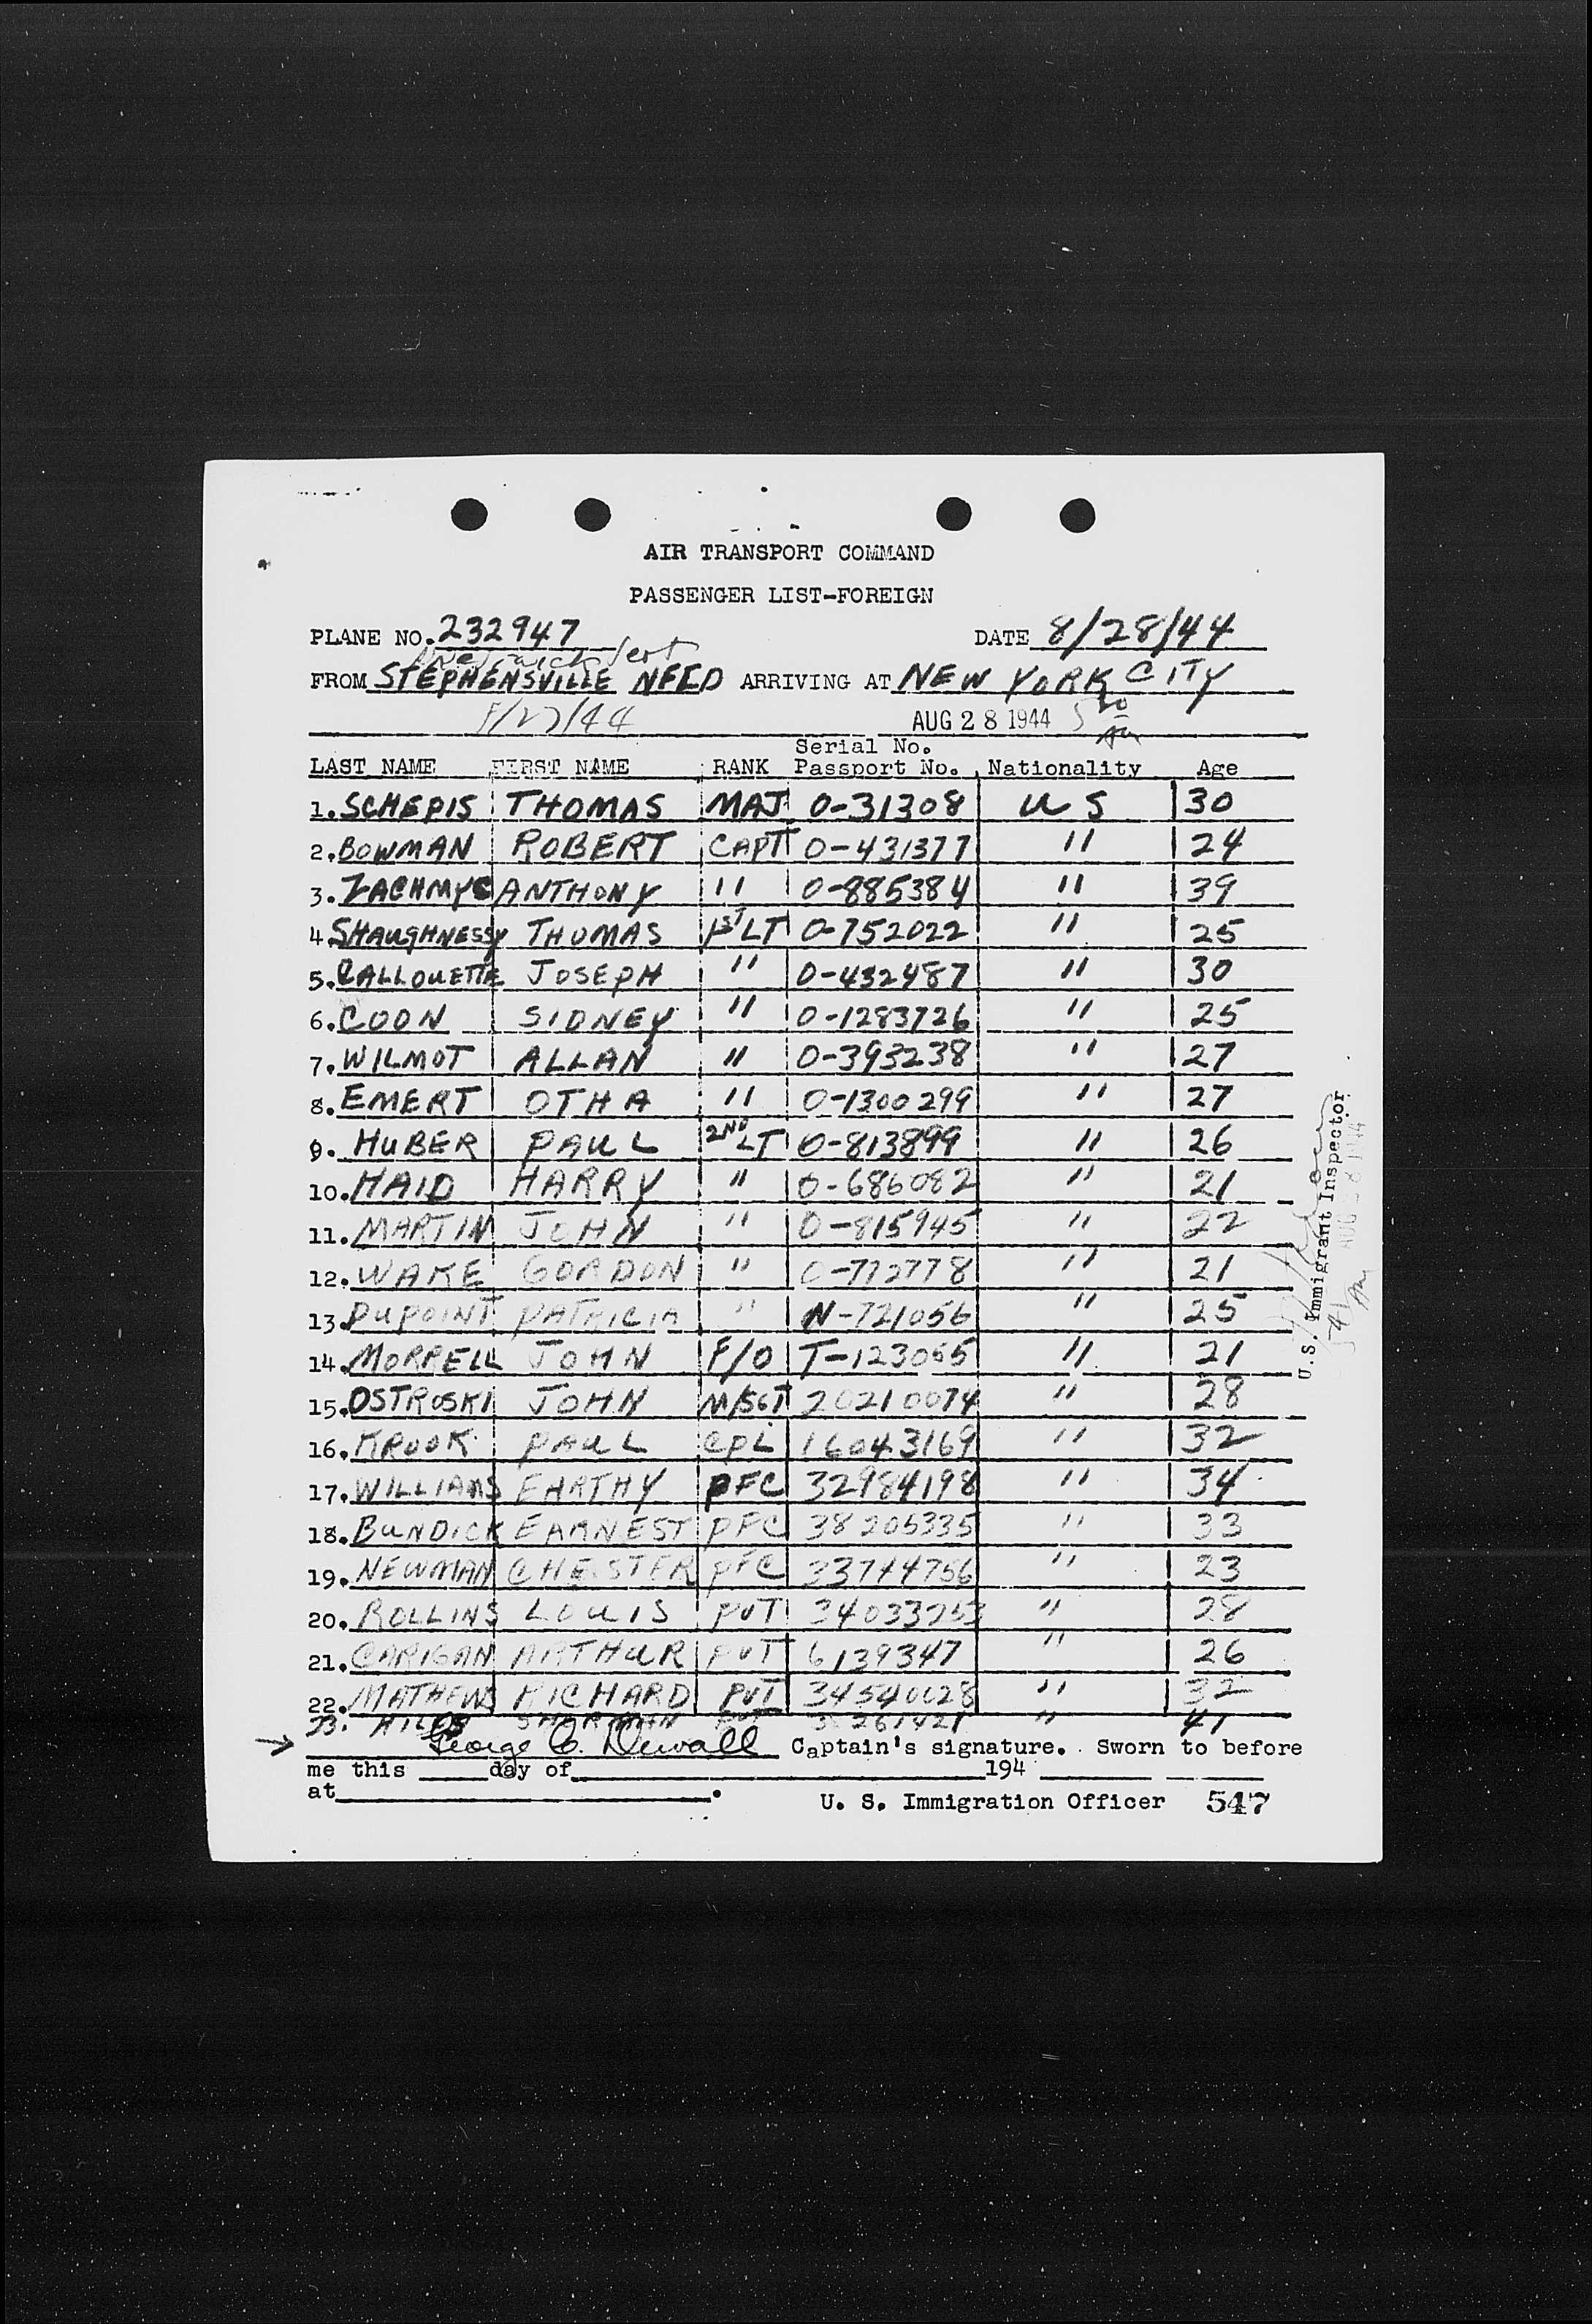 AIR TRANSPORT COMMAND
PASSENGER LIST-FOREIGN
PLANE NO. 232947 DATE 8/28/44
FROM STEPHENSVILLE NFLD ARRIVING AT NEW YORK CITY
8/27/44 AUG 28 1944
LAST NAME FIRST NAME RANK Serial No. Passport No. Nationality Age
1. SCHEPIS THOMAS MAJ O-31308 U S 30
2. BOWMAN ROBERT CAPT O-431377 " 24
3. ZACHMYC ANTHONY " O-885384 " 39
4 SHAUGHNESSY THOMAS 1ST LT O-752022 " 25
5. CALLOUETTE JOSEPH " O-432487 " 30
6. COON SIDNEY " O-1283726 " 25
7. WILMOT ALLAN " O-393238 " 27
8. EMERT OTHA " O-1300299 " 27
9. HUBER PAUL 2ND LT O-813899 " 26
10. HAID HARRY " O-686082 " 21
11. MARTIN JOHN " O-815945 " 22
12. WAKE GORDON " O-772778 " 21
13. DUPOINT PATRICIA " N-721056 " 25
14. MORRELL JOHN F/O T-123065 " 21
15. OSTROSKI JOHN M/SGT 20210074 " 28
16. KROOK PAUL CPL 16043169 " 32
17. WILLIAMS EARTHY PFC 32984198 " 34
18. BUNDICK EARNEST PFC 38205335 " 33
19. NEWMAN CHESTER PFC 33744756 " 23
20. ROLLINS LOUIS PVT 34033253 " 28
21. CARIGAN ARTHUR PVT 6139347 " 26
22. MATHEWS RICHARD PVT 34540028 " 32
23. SHERMAN " 41
George C. Dewall Captain's signature. Sworn to before
me this day of 194
at .
U. S. Immigration Officer 547
U.S. Immigrant Inspector